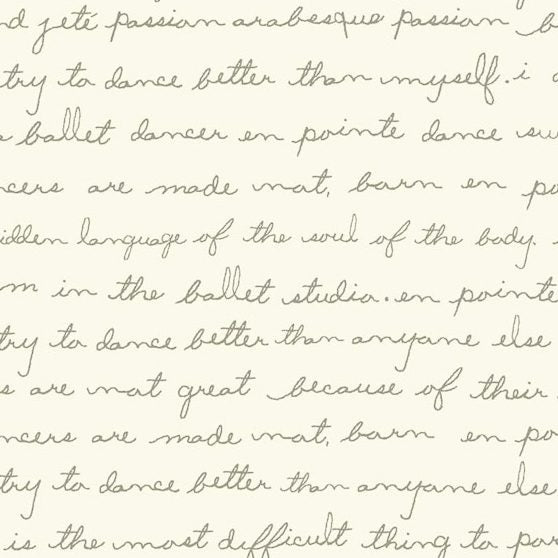 nd jeté passion arabesque passion b
try to dance better than myself. i d
ballet dancer en pointe dance sw
ncers are made not, born en po
idden language of the soul of the body.
m in the ballet studio. en pointe
try to dance better than anyone else
s are not great because of their
ncers are made not, born en po
try to dance better than anyone else
is the most difficult thing to por